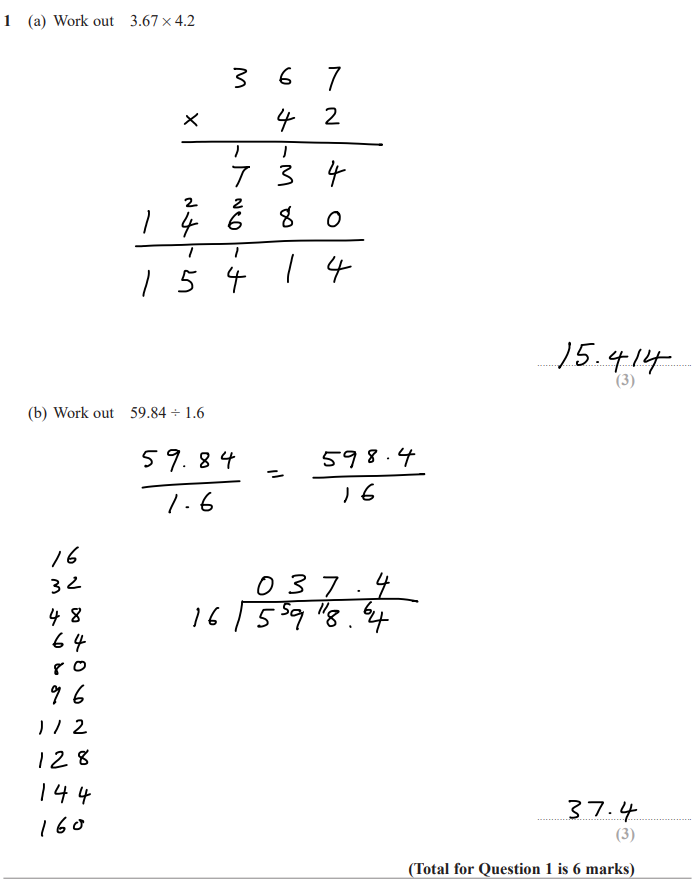 1 (a) Work out 3.67 × 4.2
3 6 7
× 4 2
1 1
7 3 4
2 2
1 4 6 8 0
1 1
1 5 4 1 4
15.414
(3)
(b) Work out 59.84 ÷ 1.6
59.84 = 598.4
1.6 16
16
32
48
64
80
96
112
128
144
160
037.4
16 5 59 118.64
37.4
(3)
(Total for Question 1 is 6 marks)